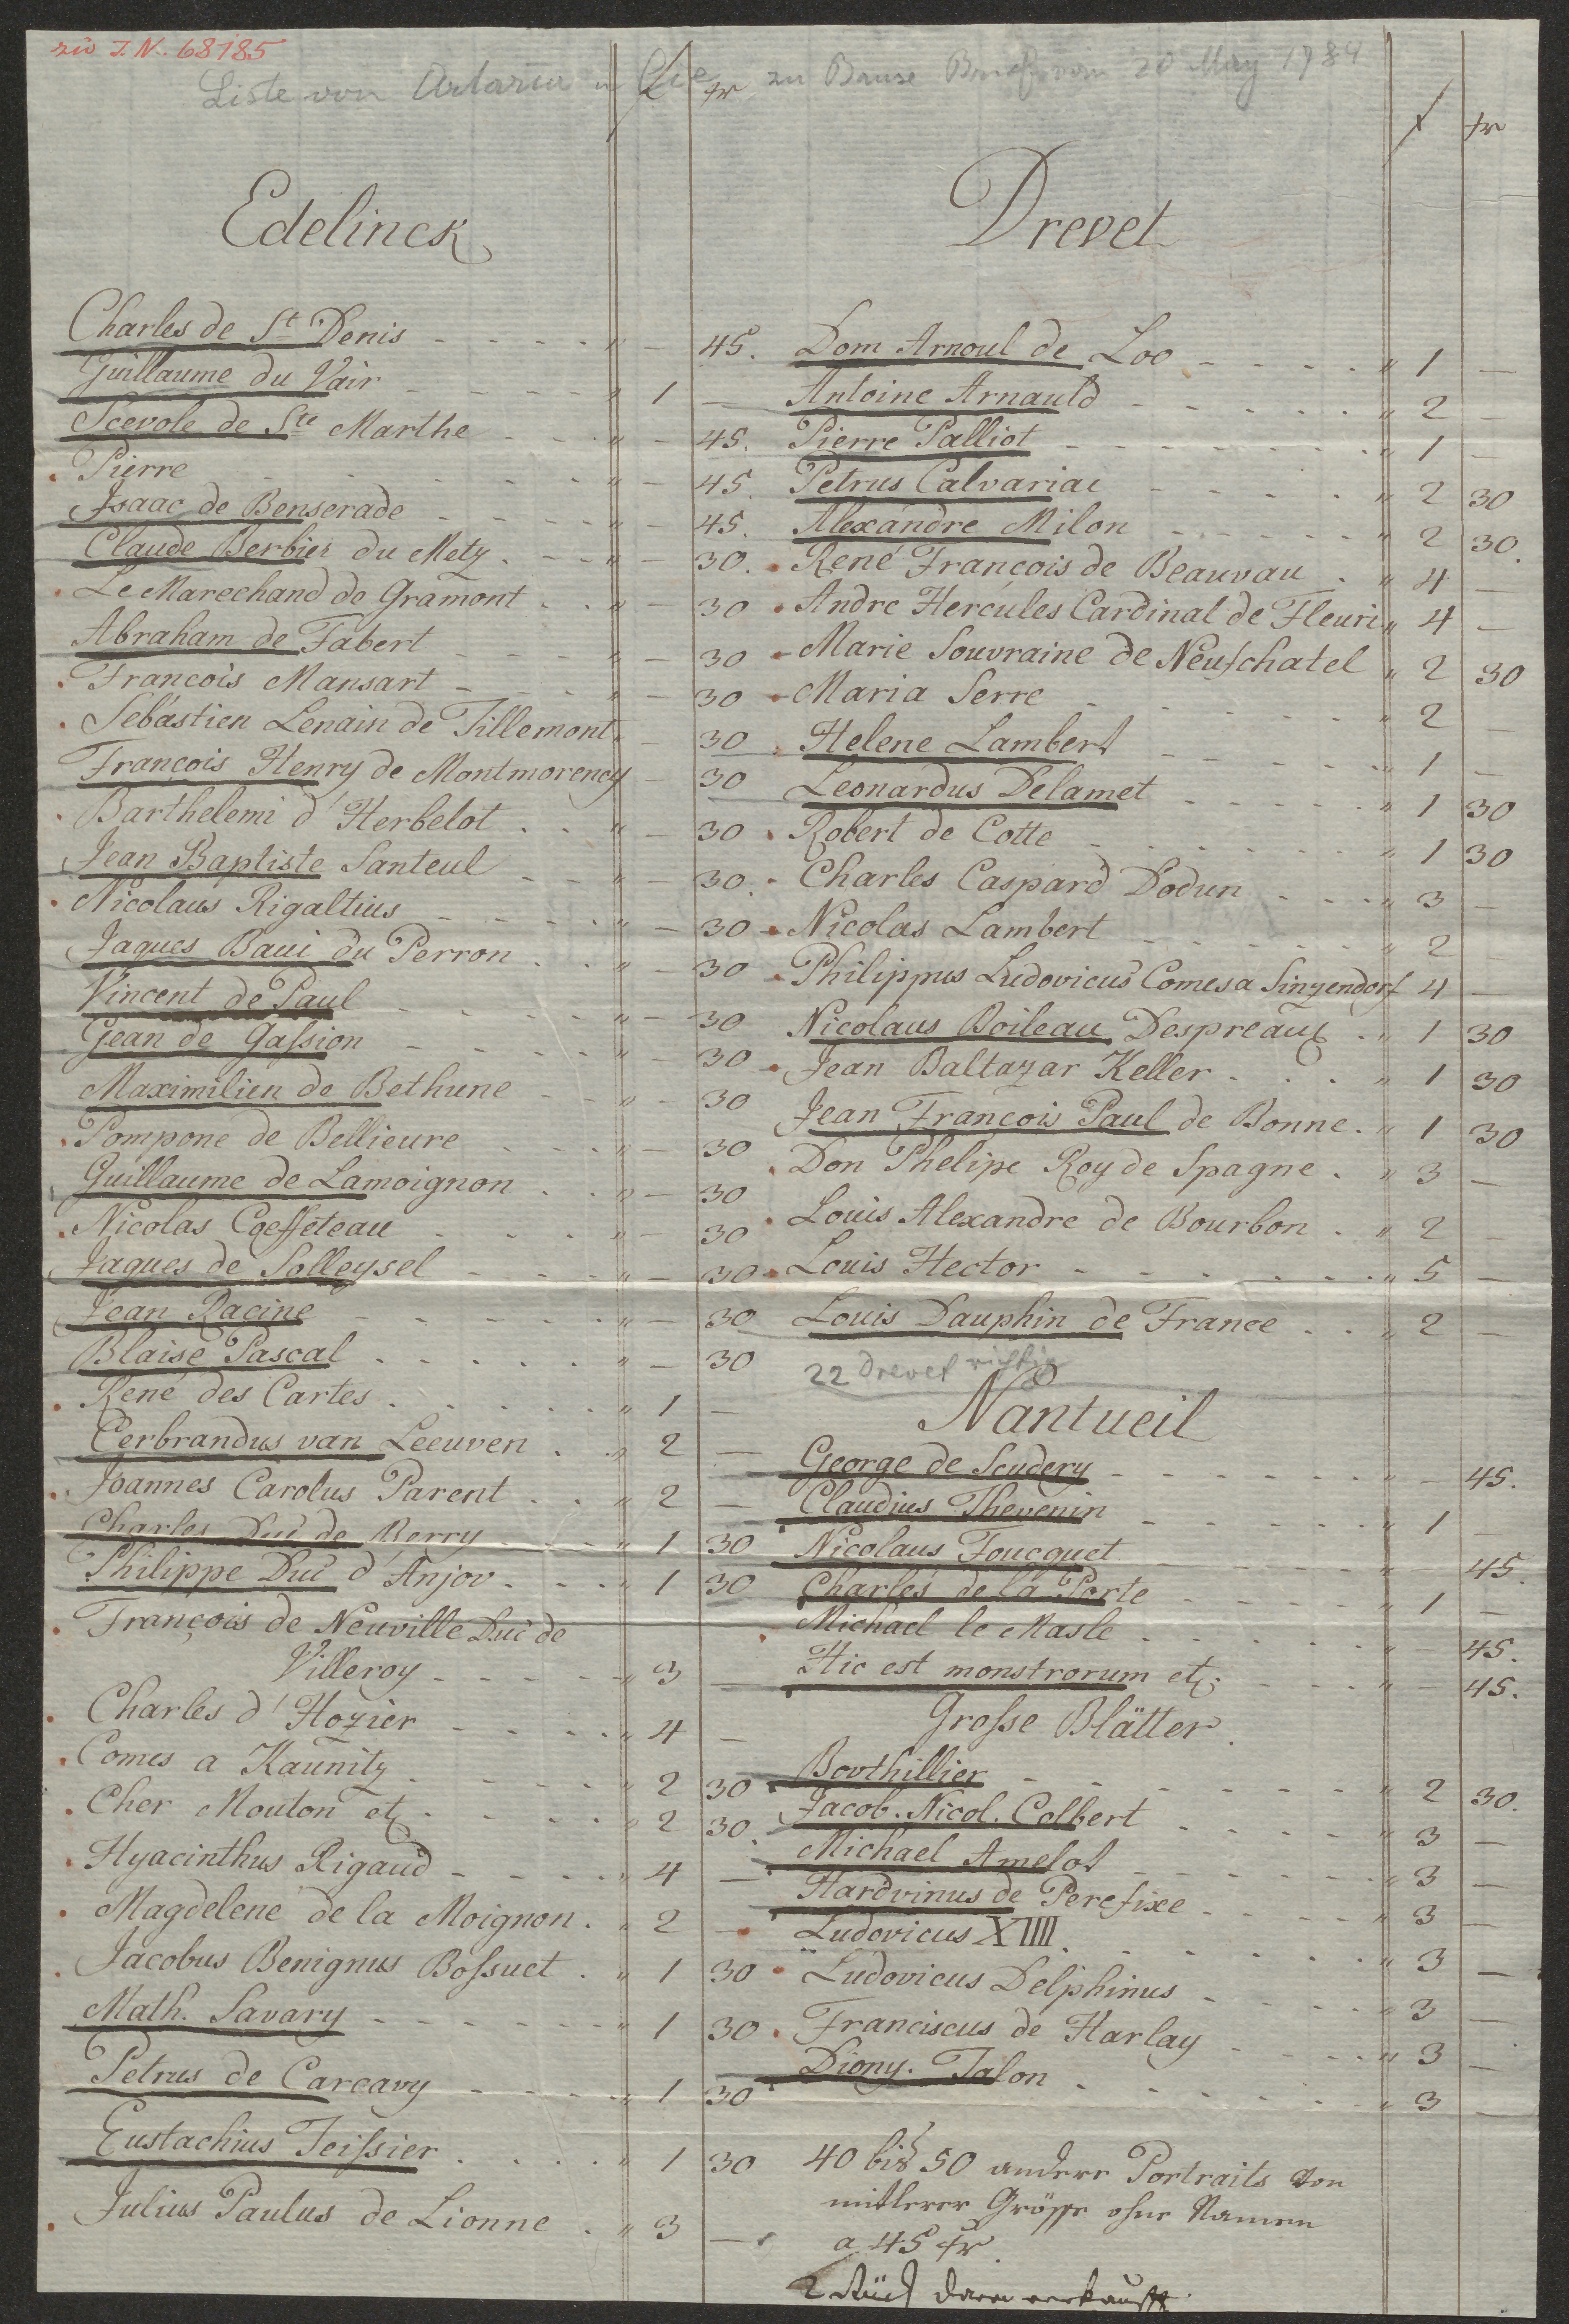 zu I.N. 68185
Liste von Artaria u Cie zu Bause Brief vom 20 May 1784
f xr
f xr
Edelinck
Charles de St Denis - - - - " - 45.
Guillaume du Vair - - - - " 1 -
Scevole de Ste Marthe - - - " - 45.
Pierre - - - - - - " - 45.
Isaac de Benserade - - - - " - 45.
Claude Berbier du Metz . - - " - 30.
Le Marechand de Gramont . . " - 30
Abraham de Fabert - - - - " - 30
François Mansart - - - - " - 30
Sebastien Lenain de Tillemont " - 30
François Henry de Montmorency - 30
Barthelemi d'Herbelot . . " - 30
Jean Baptiste Santeul - - " - 30.
Nicolaus Rigaltius - - - - " - 30
Jaques Baui du Perron . . " - 30
Vincent de Paul - - - - " - 30
Gean de Gassion - - - - " - 30
Maximilien de Bethune - - " - 30
Pompone de Bellieure - - - " - 30
Guillaume de Lamoignon . . " - 30
Nicolas Coeffeteau . - - . " - 30
Jaques de Solleysel - - - " - 30
Jean Racine - - - - - " - 30
Blaise Pascal . . . . . " - 30
René des Cartes . . . . . " 1 -
Cerbrandus van Leeuven . . " 2 -
Joannes Carolus Parent . . " 2 -
Charles Duc de Berry - - - " 1 30
Philippe Duc d'Anjov . - - " 1 30
François de Neuville Duc de
Villeroy - - - - - " 3 -
Charles d'Hozier - - - - " 4 -
Comes a Kaunitz . - - - - " 2 30
Cher Mouton etc - - - . " 2 30.
Hyacinthus Rigaud - - - . " 4 -
Magdelene de la Moignon . " 2 -
Jacobus Benignus Bossuet . " 1 30
Math. Savary - - - - - - " 1 30
Petrus de Carcavy - - - - " 1 30
Eustachius Teissier . . . . " 1 30
Julius Paulus de Lionne . " 3 -
Drevet
Dom Arnoul de Loo - - - . " 1 -
Antoine Arnauld - - - - - " 2 -
Pierre Palliot - - - - - - " 1 -
Petrus Calvariae - - - - . " 2 30
Alexandre Milon - - - - - " 2 30.
René François de Beauvau . " 4 -
Andre Hercules Cardinal de Fleuri " 4 -
Marie Souvraine de Neufchatel " 2 30
Maria Serre - - - - - - " 2 -
Helene Lambert - - - - - " 1 -
Leonardus Delamet - - - - " 1 30
Robert de Cotte - - - - - " 1 30
Charles Caspard Dodun - - - " 3 -
Nicolas Lambert - - - - - " 2 -
Philippus Ludovicus Comes a Sinzendorf 4 -
Nicolaus Boileau Despreaux . " 1 30
Jean Baltazar Keller . - . " 1 30
Jean François Paul de Bonne . " 1 30
Don Phelipe Roy de Spagne . " 3 -
Louis Alexandre de Bourbon . " 2 -
Louis Hector - - - - - - " 5 -
Louis Dauphin de France . . " 2 -
22 Drevet richtig
Nantueil
George de Scudery - - - - - - " - 45.
Claudius Thevenin - - - - - " 1 -
Nicolaus Foucquet - - - - - " - 45.
Charles de la Porte - - - - - " 1 -
Michael le Masle . - - - - - " - 45.
Hic est monstrorum etc - - - " - 45.
Grosse Blätter.
Bovthillier - - - - - - - " 2 30.
Jacob. Nicol. Colbert . - - - " 3 -
Michael Amelot - - - - - " 3 -
Hardvinus de Perefixe - - - - " 3 -
Ludovicus XIIII . - - - - - " 3 -
Ludovicus Delphinus - - - - " 3 -
Franciscus de Harlay - - - - " 3 -
Diony. Talon . - - - - - " 3 -
40 bis 50 andere Portraits von
mitlerer Grösse ohne Namen
a 45 xr.
2 Stück davon verkaufft